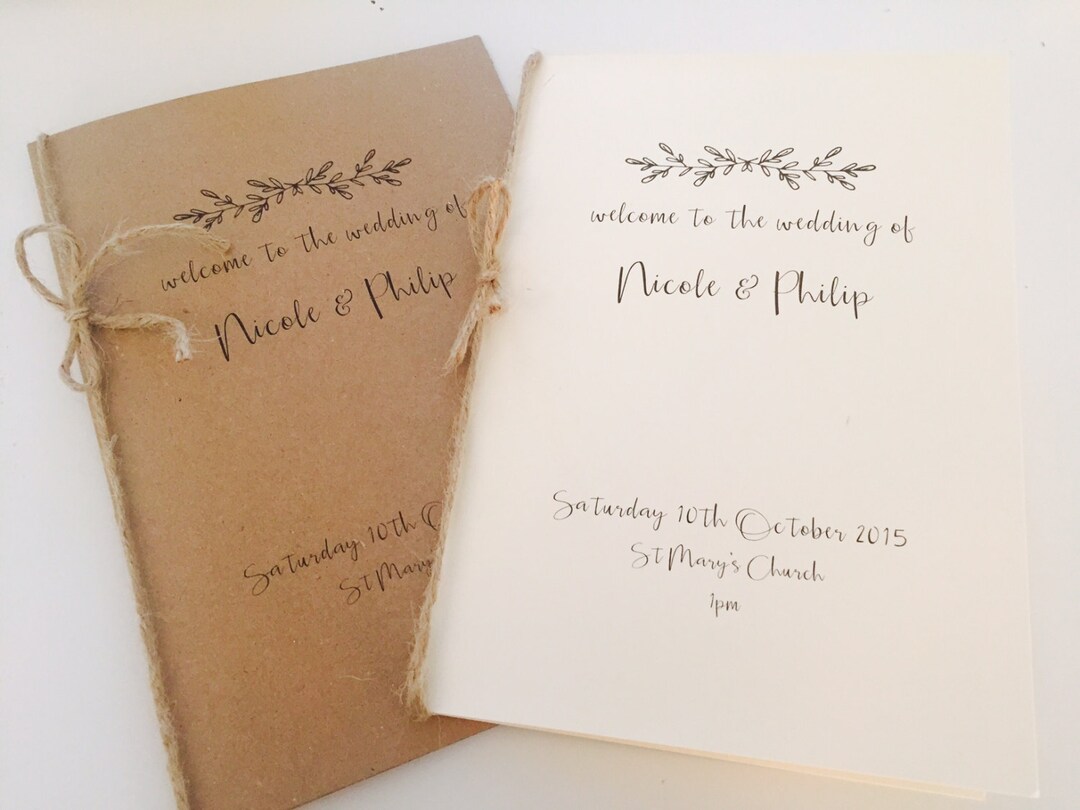 welcome to the wedding of
Nicole & Philip
Saturday 10th O
St Mary
welcome to the wedding of
Nicole & Philip
Saturday 10th October 2015
St Mary's Church
1pm